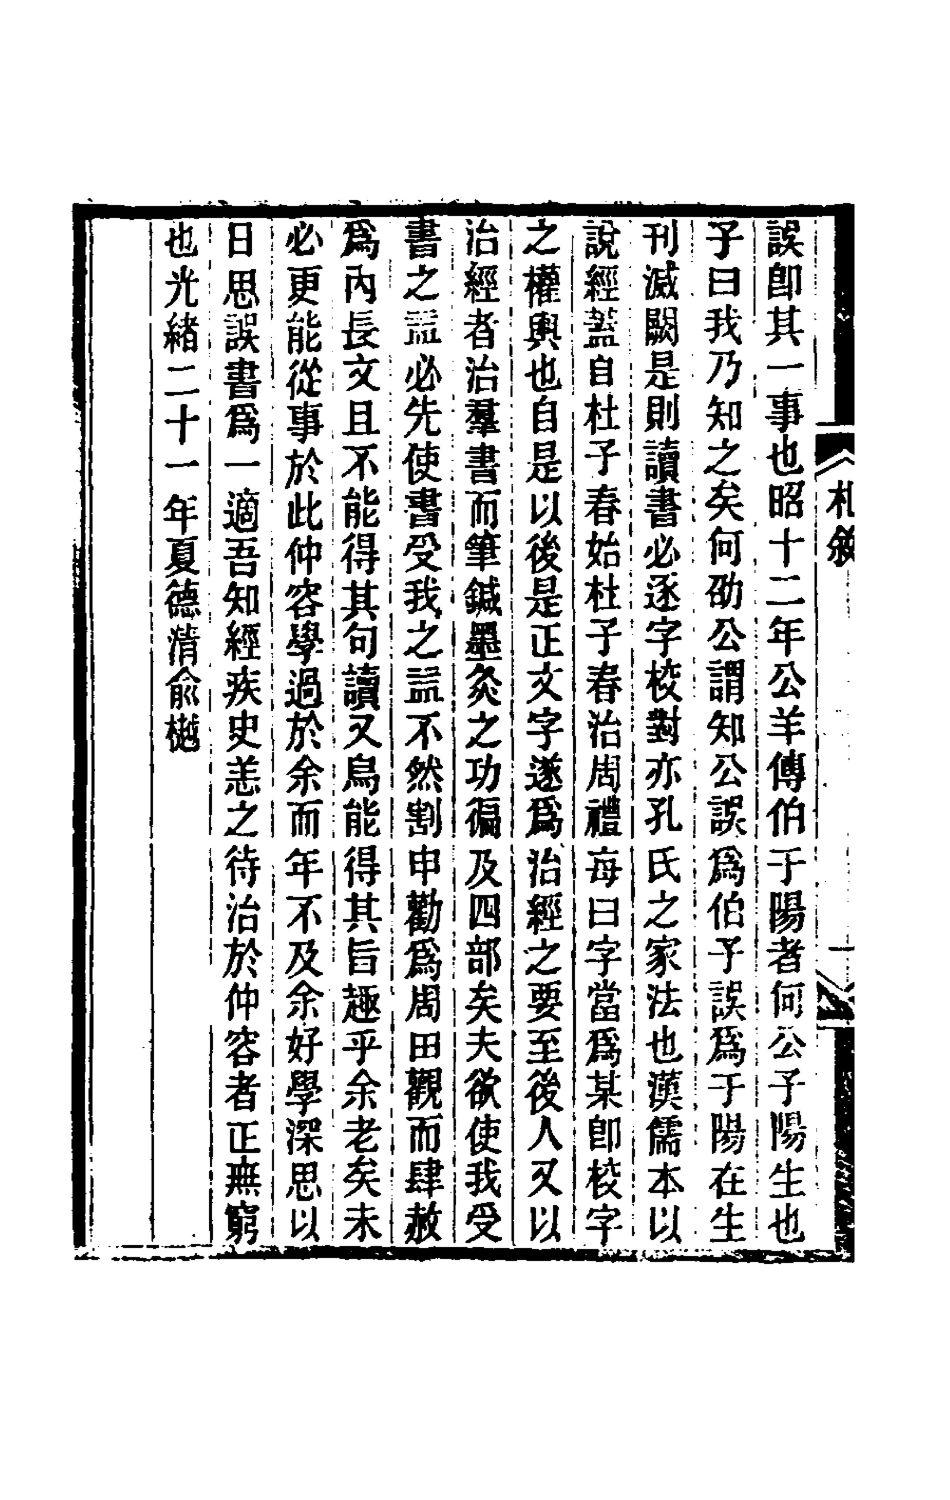 誤卽其一事也昭十二年公羊傳伯于陽者何公子陽生也
子曰我乃知之矣何劭公謂知公誤爲伯子誤爲于陽在生
刊滅闕是則讀書必逐字校對亦孔氏之家法也漢儒本以
說經蓋自杜子春始杜子春治周禮每曰字當爲某卽校字
之權輿也自是以後是正文字遂爲治經之要至後人又以
治經者治羣書而筆鍼墨灸之功徧及四部矣夫欲使我受
書之益必先使書受我之益不然割申勸爲周田觀而肆赦
爲內長文且不能得其句讀又烏能得其旨趣乎余老矣未
必更能從事於此仲容學過於余而年不及余好學深思以
日思誤書爲一適吾知經疾史恙之待治於仲容者正無窮
也光緒二十一年夏德淸俞樾
札敘
一